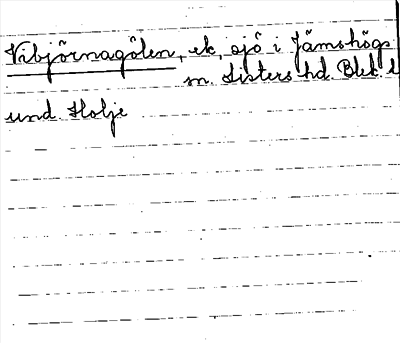 Vibjörnagölen, ek, sjö i Jämshögs
sn. Listers hd. Blek. l
und. Holje